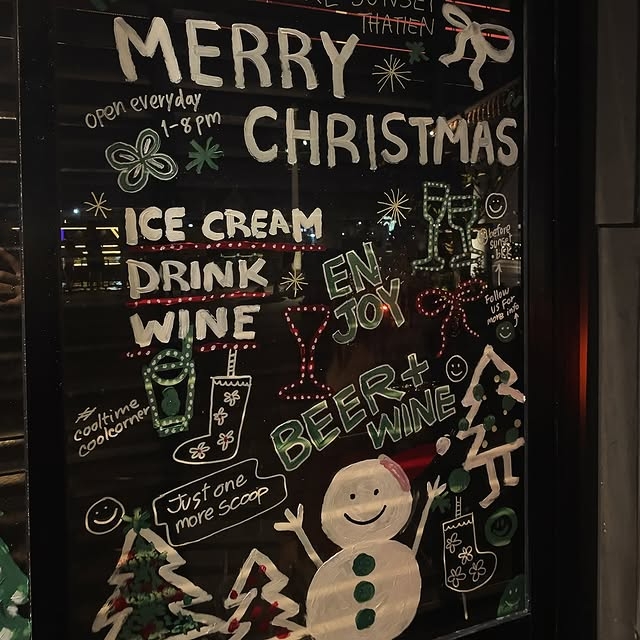 SUNSET
THATIEN
MERRY
CHRISTMAS
open everyday
1-8 pm
ICE CREAM
DRINK
WINE
EN
JOY
before
sunset
Follow
us for
more info
BEER+
WINE
cooltime
coolcorner
Just one
more scoop